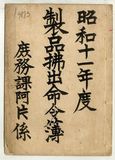 昭和十一年度
製品拂出命令簿
庶務課阿片係